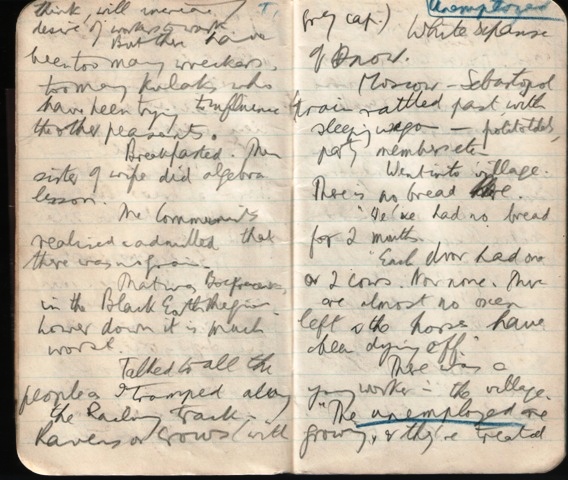 think, will increase
desire of workers to work.
But there have
been too many wreckers,
too many kulaks who
have been trying to influence
the other peasants.
Breakfasted. Then
sister of wife did algebra
lesson.
The Communists
realised & admitted that
there was no grain.
That was
in the Black Earth Region.
Lower down it is much
worse.
Talked to all the
people as I tramped along
the Railway Track.
Ravens or Crows (with
grey cap.)
Unemployed
White expanse
of snow.
Moscow - Sebastopol
train rattled past, with
sleeping wagon —
party members etc.
Went into village.
There is no bread here.
"We've had no bread
for 2 months.
"Each dvor had one
or 2 cows. Now none. There
are almost no oxen
left & the horses have
been dying off."
There was a
young worker in the village.
"The unemployed are
growing, & they're treated